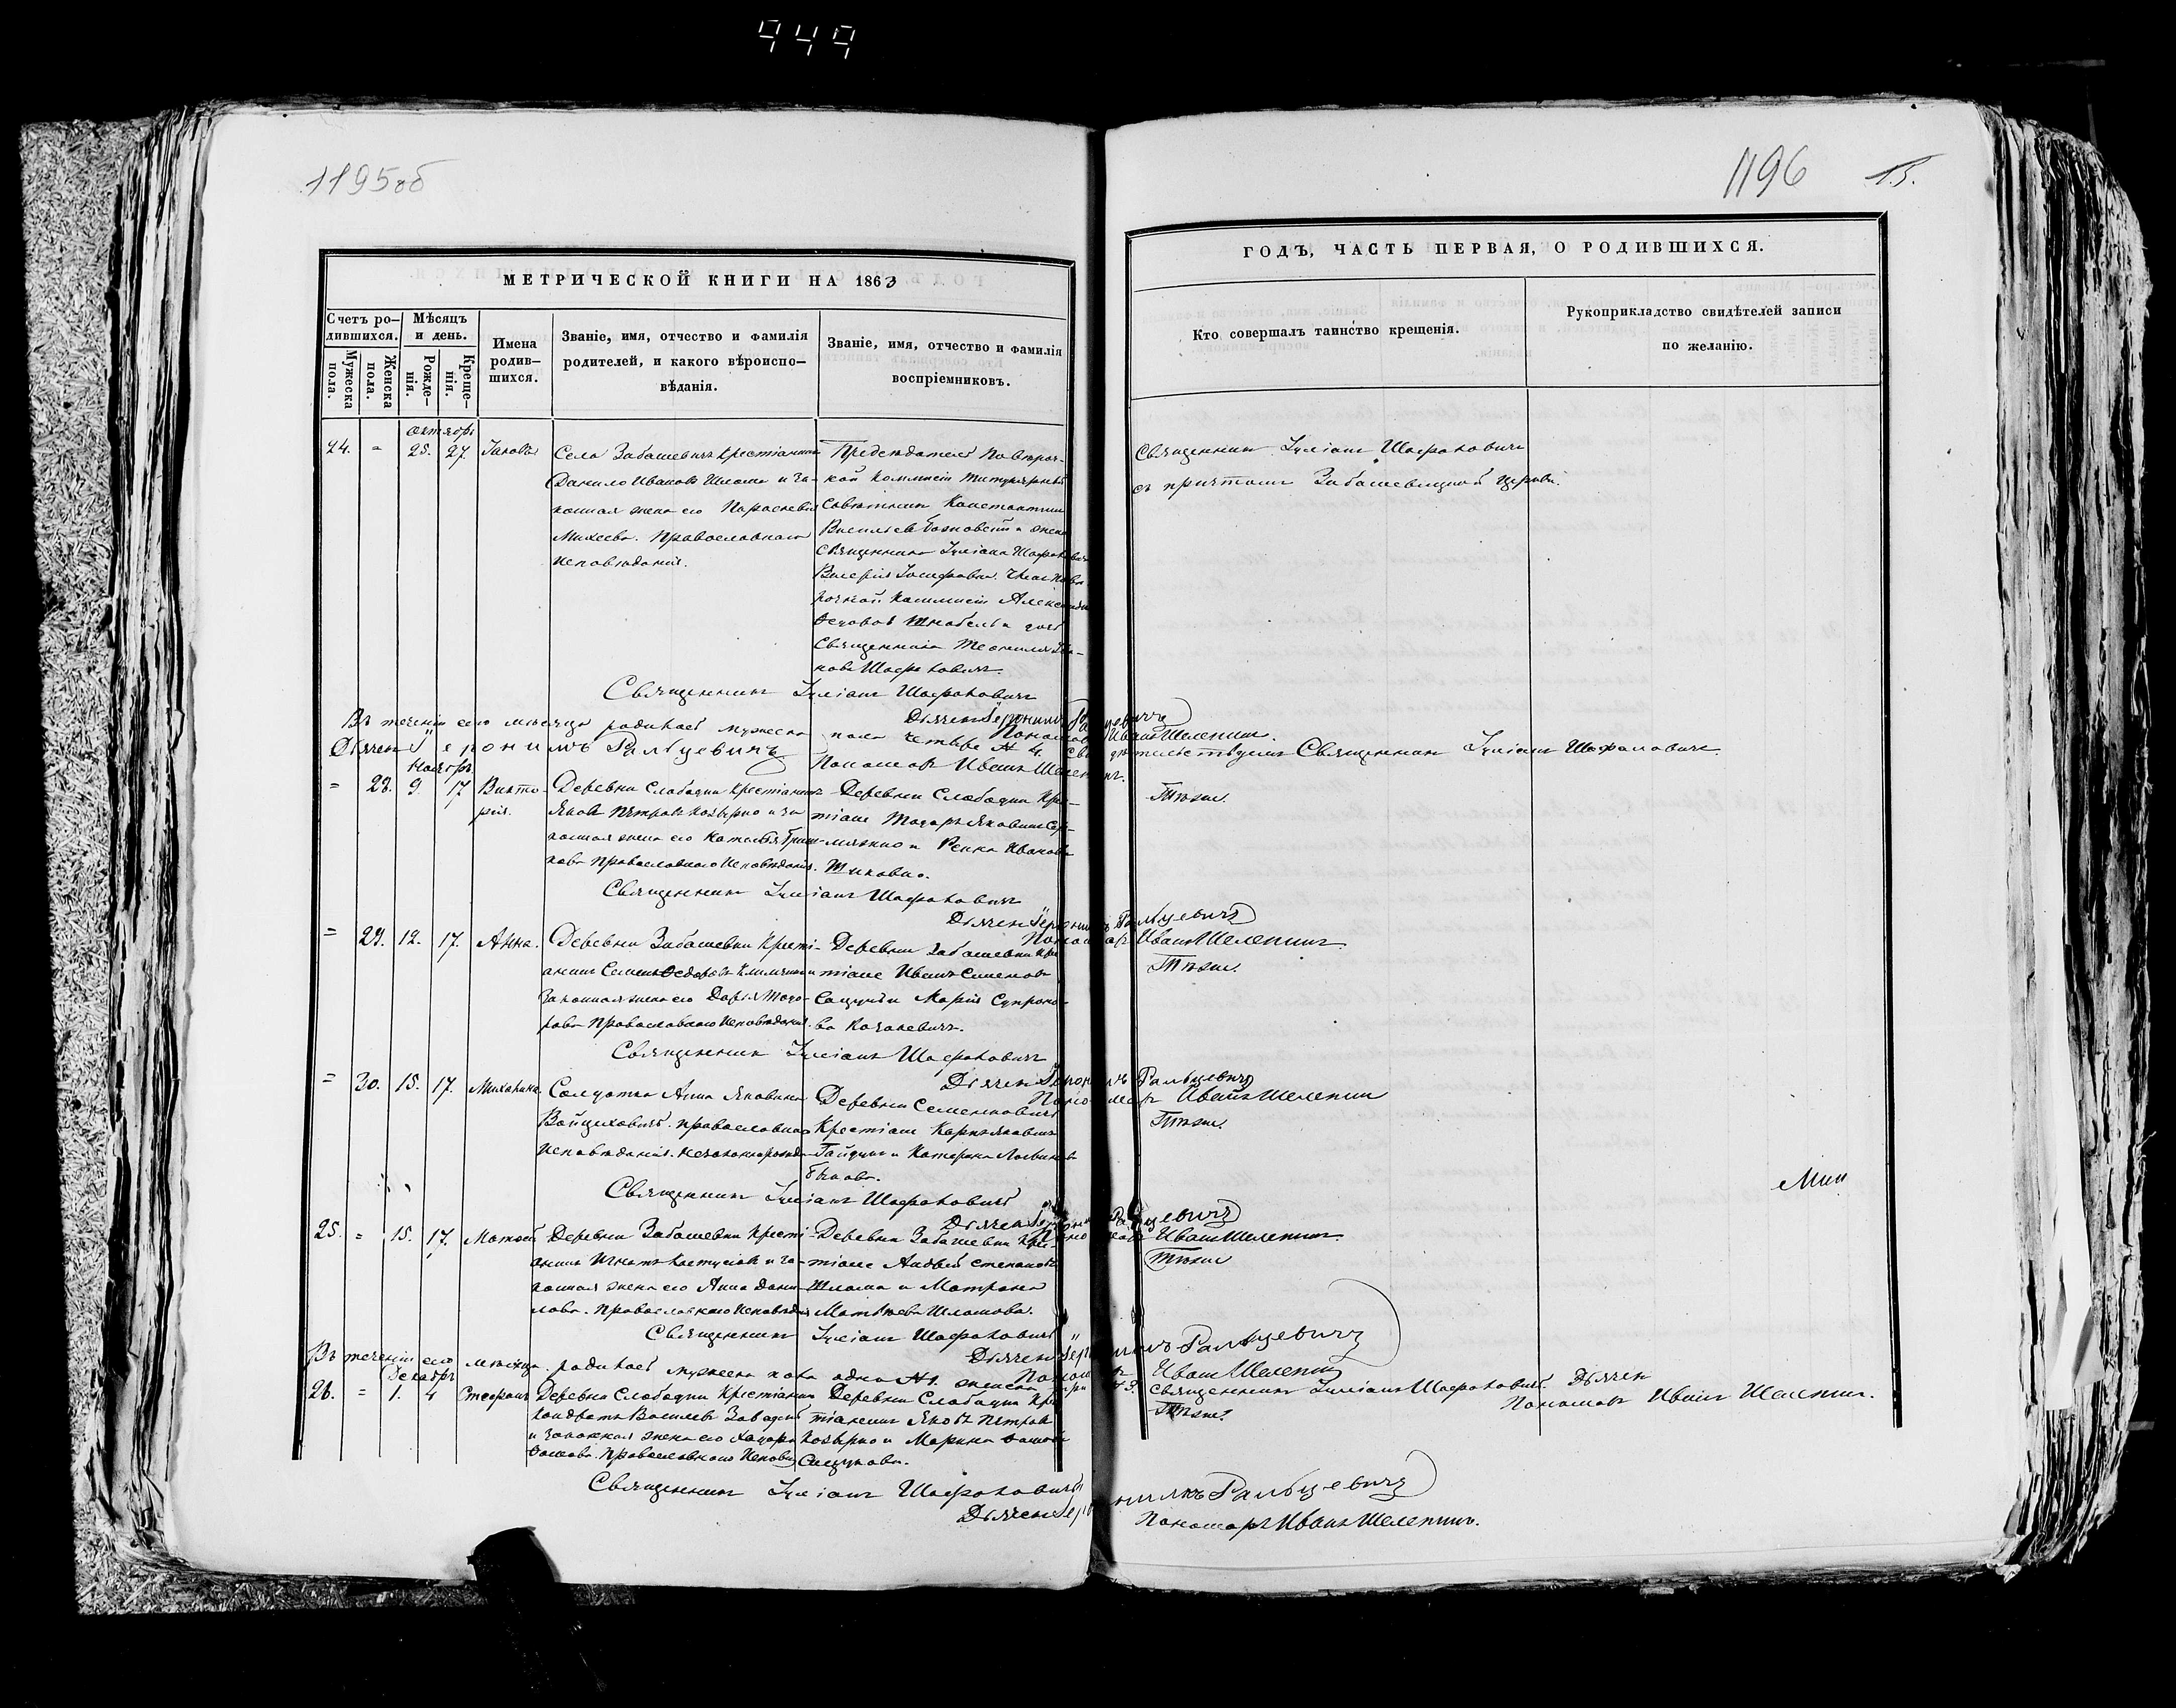 949
1195об
1196 15.
МЕТРИЧЕСКОЙ КНИГИ НА 1863
ГОДЪ, ЧАСТЬ ПЕРВАЯ, О РОДИВШИХСЯ.
Счетъ ро-
дившихся.
Мужеска
пола.
Женска
пола.
Мѣсяцъ
и день.
Рожде-
нія.
Креще-
нія.
Имена
родив-
шихся.
Званіе, имя, отчество и фамилія
родителей, и какого вѣроиспо-
вѣданія.
Званіе, имя, отчество и фамилія
воспріемниковъ.
Кто совершалъ таинство крещенія.
Рукоприкладство свидѣтелей записи
по желанію.
октябрь
24. = 25. 27. Іаковъ
Села Забашевичъ крестіанинъ
Данило Ивановъ Шлома и за-
конная жена его Параскевія
Михеева. Православнаго
Исповѣданія.
Предсѣдатель Повѣроч-
ной Коммисіи Титулярный
Совѣтникъ Константинъ
Васильевъ и жена
Священника Іуліана Шафрановича
Валерія Іосифовна. Членъ Повѣ-
рочной Коммисіи Александръ
и дочь
Священника Теофилія
Шафрановичъ.
Священникъ Іуліанъ Шафрановичъ
съ причтомъ Забашевицкой церкви.
Священникъ Іуліанъ Шафрановичъ
Дьячекъ Іеронимъ Ральцевичъ
Пономарь Иванъ Шелепинъ.
Въ теченіи сего мѣсяца родилось мужеска пола четыре № 4 свидѣтельствуемъ Священникъ Іуліанъ Шафрановичъ
Дьячекъ Іеронимъ Ральцевичъ Пономарь Иванъ Шелепинъ.
Ноябрь
= 28. 9. 17 Викто-
рія.
Деревни Слабодки крестіанинъ
Яковъ Петровъ Козырко и за-
конная жена его
Православнаго Исповѣданія.
Деревни Слабодки Кре-
стіане
и Ивановъ
Тѣже.
Священникъ Іуліанъ Шафрановичъ
Дьячекъ Іеронимъ Ральцевичъ
Пономарь Иванъ Шелепинъ
= 29. 12. 17. Анна.
Деревни Забашевки Кресті-
анинъ Семенъ Федоровъ Климчикъ и
Законная жена его Дарія Тодо-
рова Православнаго Исповѣданія.
Деревни Забашевки Кре-
стіане Иванъ Семеновъ
и Марія Супроно-
ва
Тѣже.
Священникъ Іуліанъ Шафрановичъ
Дьячекъ Іеронимъ Ральцевичъ
Пономарь Иванъ Шелепинъ
= 30. 15. 17. Михалина.
Солдатка Анна Яковлева
Войцеховичъ. Православнаго
Исповѣданія. Незаконнорожде-
Деревни Семенковичъ
Крестіане Карпъ Яковлевъ
Гайдукъ и Катерина
Тѣже.
Священникъ Іуліанъ Шафрановичъ
Дьячекъ Іеронимъ Ральцевичъ
Пономарь Иванъ Шелепинъ.
Мин
25. = 15. 17. Матѳей
Деревни Забашевки Кресті-
анинъ Игнатъ и за-
конная жена его Анна Дани-
лова. Православнаго Исповѣданія
Деревни Забашевки Кре-
стіане Андрей Степановъ
Шлома и Матрона
Матѳеева Шломова.
Тѣже
Священникъ Іуліанъ Шафрановичъ
Дьячекъ Іеронимъ Ральцевичъ
Пономарь Иванъ Шелепинъ
Въ теченіи сего мѣсяца родилось мужеска пола одна № 1. женска три № 3. Священникъ Іуліанъ Шафрановичъ. Дьячекъ
Пономарь Иванъ Шелепинъ.
Декабрь
26. = 1. 4 Стефанъ
Деревни Слабодки Крестіанинъ
Кондратъ Васильевъ
и законная жена его
Православнаго Исповѣд
Деревни Слабодки Кре-
стіанинъ Яковъ Петровъ
Козырко и Марина
Тѣже.
Священникъ Іуліанъ Шафрановичъ
Дьячекъ Іеронимъ Ральцевичъ
Пономарь Иванъ Шелепинъ.